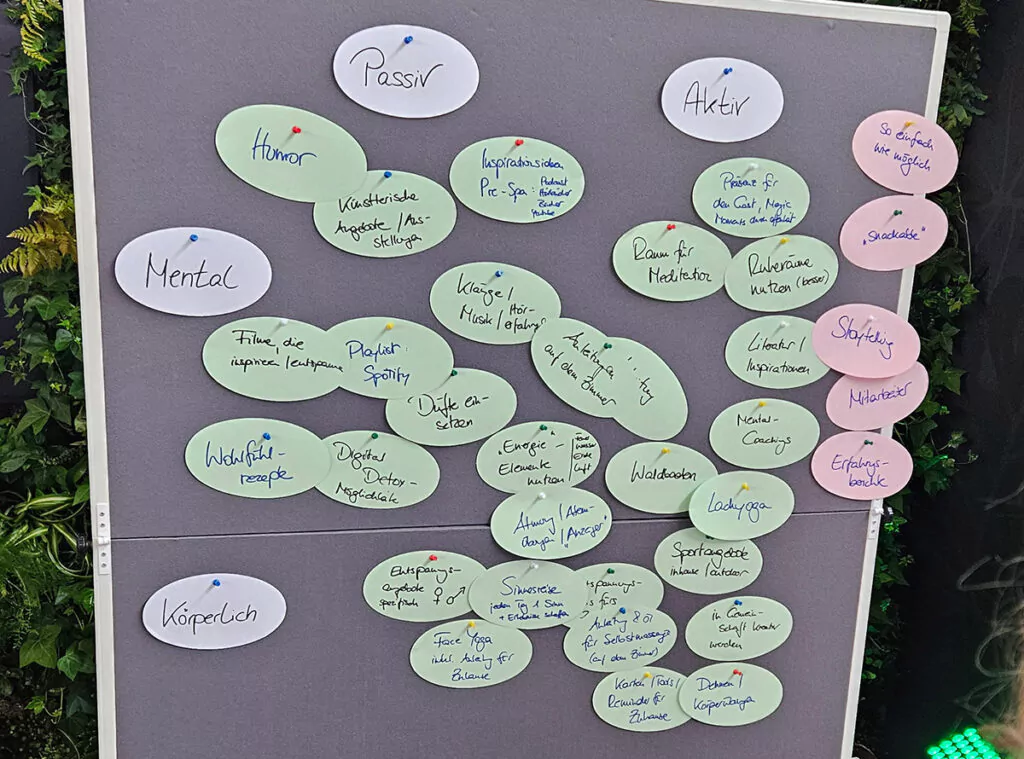 Passiv
Aktiv
Humor
Künstlerische
Angebote / Aus-
stellungen
Inspirationsideen
Pre-Spa: Podcast
Hörbücher
Bücher
Youtube
Präsenz für
den Gast, Magic
Moments
So einfach
wie möglich
„Snackable“
Mental
Raum für
Meditation
Ruheräume
nutzen (besser)
Klänge /
Musik / Hör-
Filme, die
inspirieren / entspannen
Playlist:
Spotify
Anleitungen
auf dem Zimmer
Literatur /
Inspirationen
Storytelling
Mitarbeiter
Düfte ein-
setzen
Mental-
Coachings
Wohlfühl-
rezepte
Digital
Detox-
Möglichkeite
„Energie“-
Elemente
nutzen
Feuer
Wasser
Erde
Luft
Waldbaden
Erfahrungs-
berichte
Lachyoga
Atmung / Atem-
übungen / „Anzeiger“
Sportangebote
inhouse / outdoor
Körperlich
Entspanungs-
angebote
spezifisch ♀ ♂
Sinnesreise
jeden Tag 1 Sinn
tspannungs-
s fürs
Face Yoga
inkl. Anleitung für
Zuhause
für Selbstmassage
(auf dem Zimmer)
in Gemein-
schaft kreativ
werden
Karten / Tools /
Reminder für
Zuhause
Dehnen /
Körperübungen